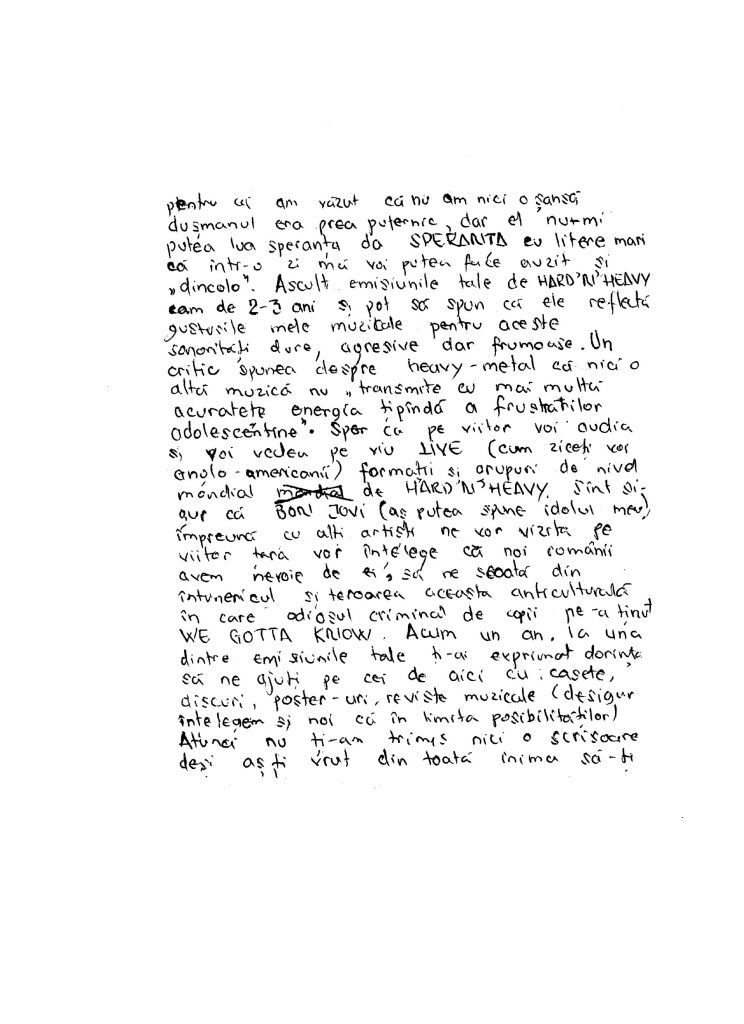 pentru că am văzut că nu am nici o șansă
dușmanul era prea puternic, dar el nu-mi
putea lua speranța da SPERANTA cu litere mari
că într-o zi mă voi putea face auzit și
„dincolo". Ascult emisiunile tale de HARD'N'HEAVY
cam de 2-3 ani și pot să spun că ele reflectă
gusturile mele muzicale pentru aceste
sonorități dure, agresive dar frumoase. Un
critic spunea despre heavy-metal că nici o
altă muzică nu „transmite cu mai multă
acuratețe energia țipîndă a frustraților
adolescentine". Sper că pe viitor voi audia
și voi vedea pe viu LIVE (cum ziceți voi
anglo-americanii) formații și grupuri de nivel
mondial de HARD'N'HEAVY. Sînt si-
gur că BON JOVI (aș putea spune idolul meu)
împreună cu alți artiști ne vor vizita pe
viitor țara vor înțelege că noi românii
avem nevoie de ei, să ne scoată din
întunericul și teroarea aceasta anticulturală
în care odiosul criminal de copii ne-a ținut
WE GOTTA KNOW. Acum un an, la una
dintre emisiunile tale ți-ai exprimat dorința
să ne ajuți pe cei de aici cu: casete,
discuri, poster-uri, reviste muzicale (desigur
înțelegem și noi că în limita posibilităților)
Atunci nu ți-am trimis nici o scrisoare
deși aș fi vrut din toată inima să-ți